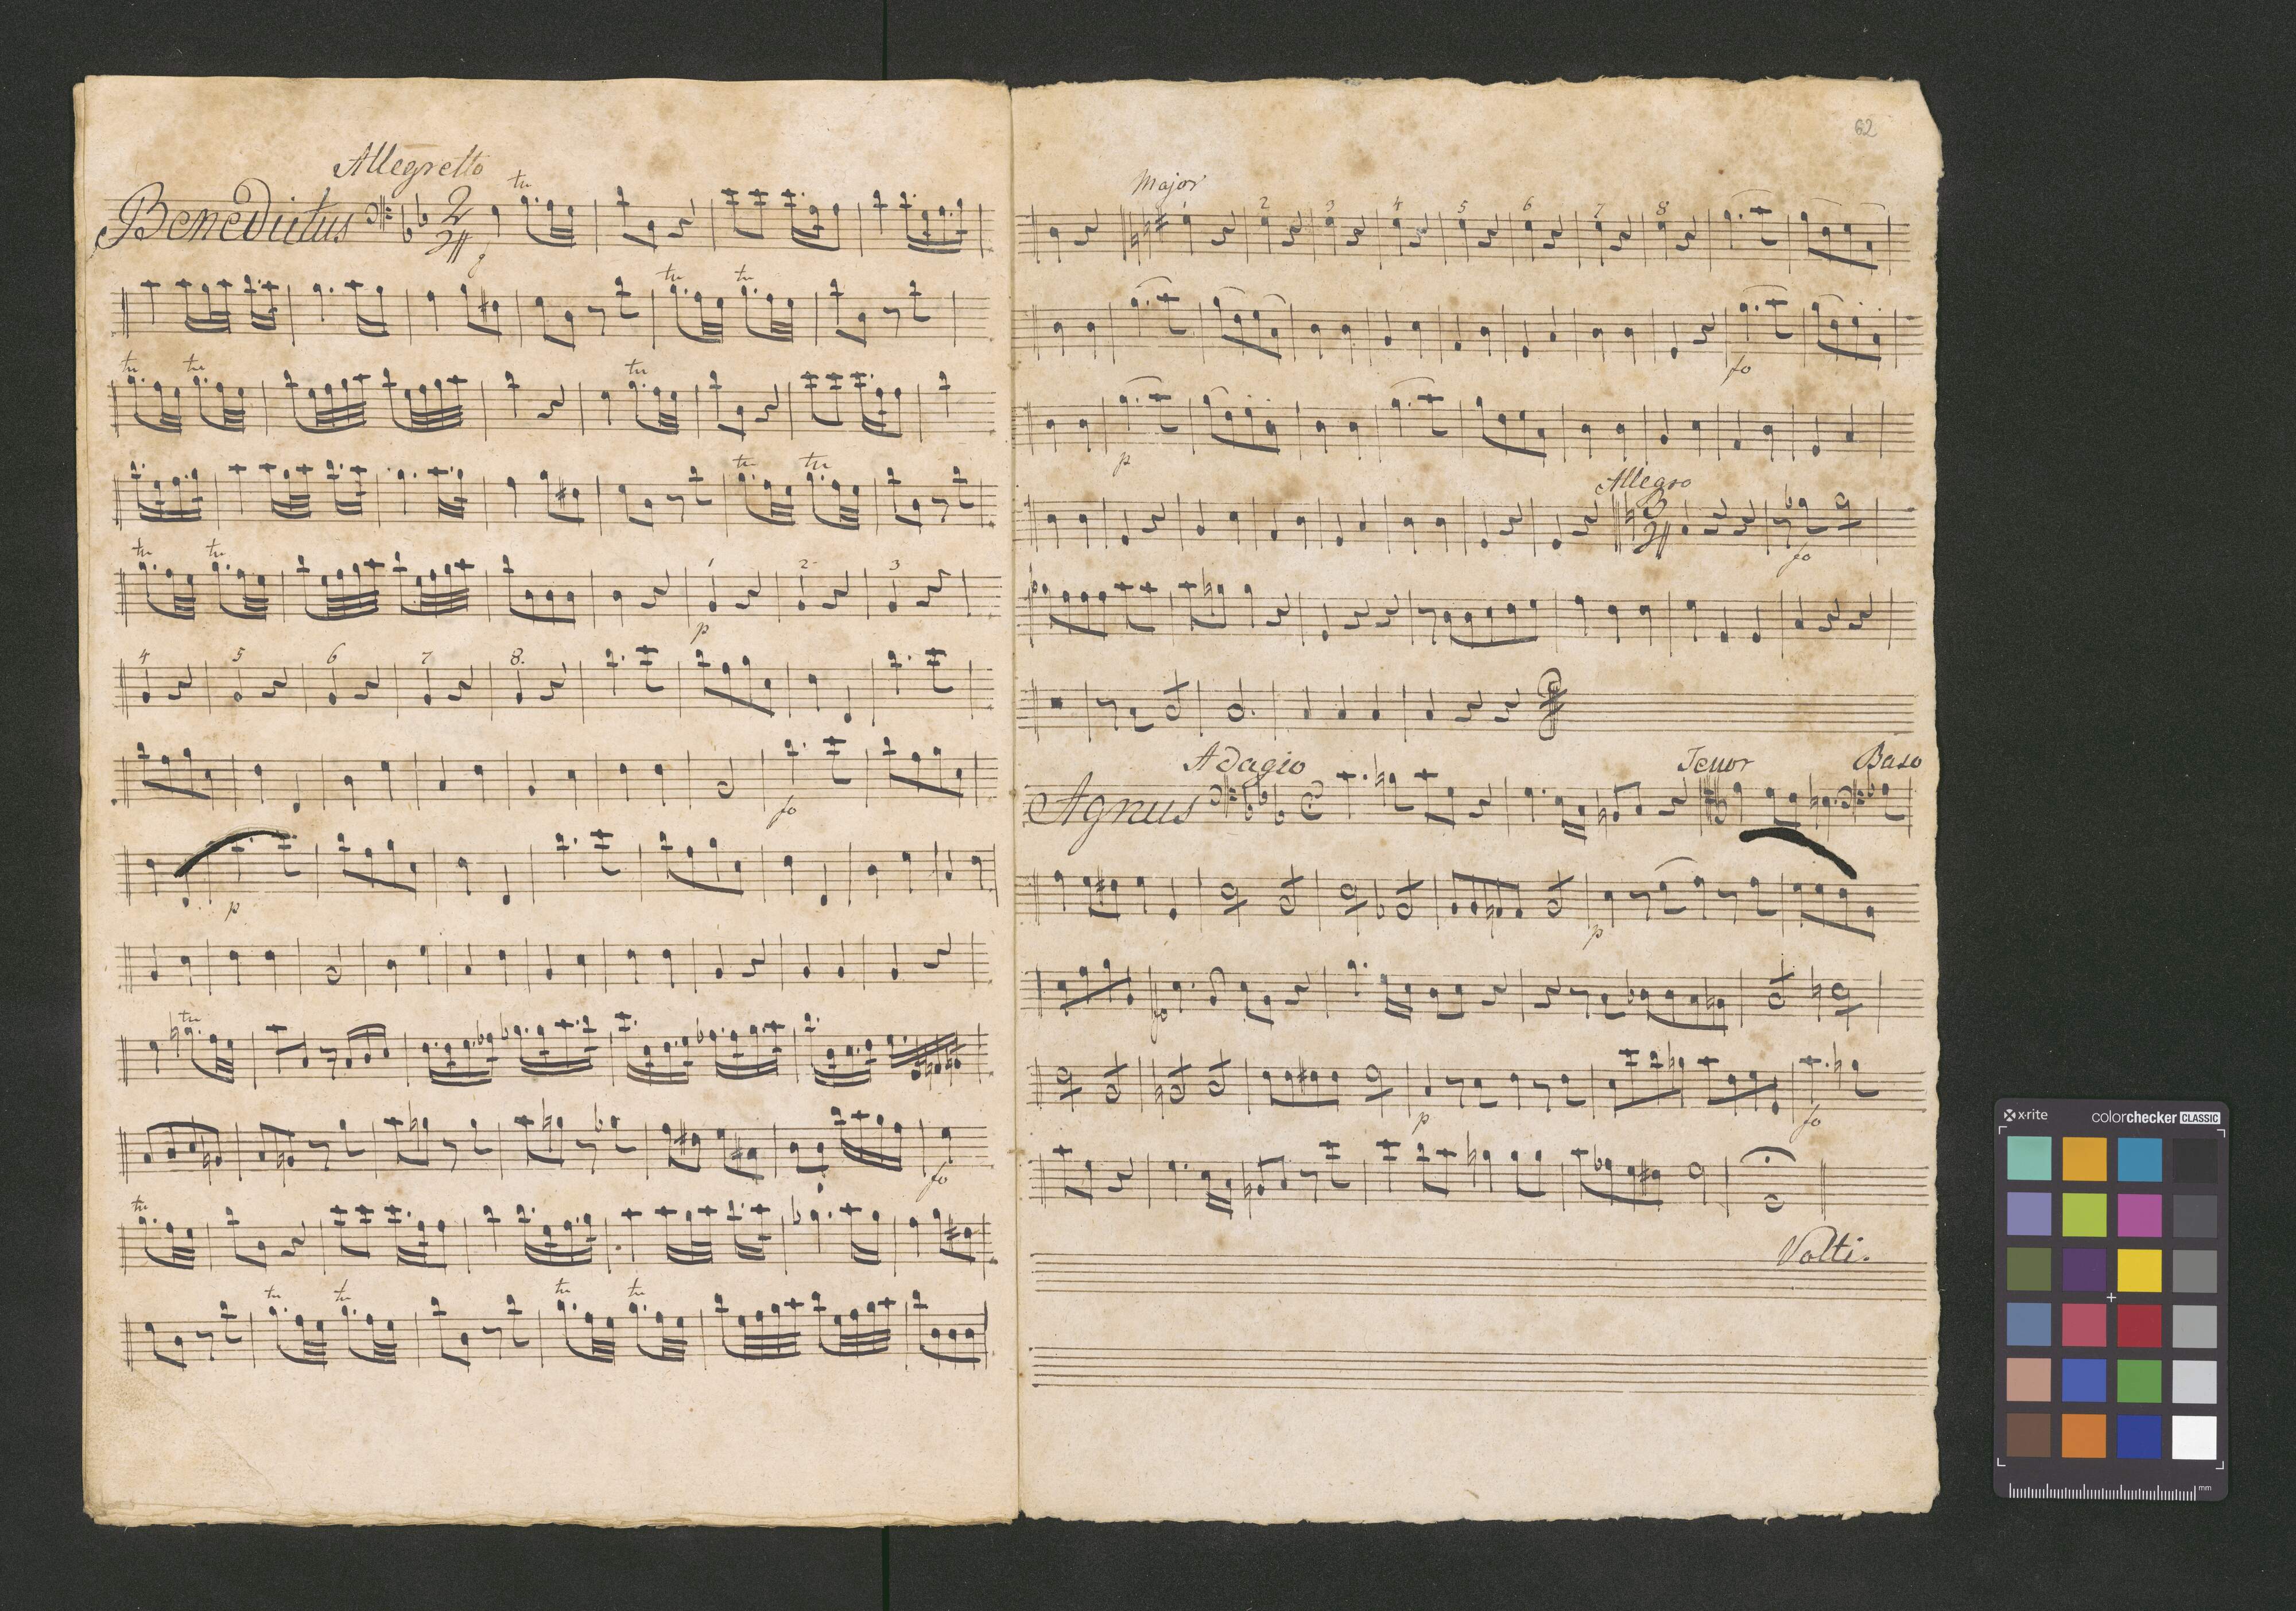 Allegretto
Benedictus 2 4 tr
tr tr
p
tr tr tr
tr tr
tr tr 1 2 3
p
4 5 6 7 8.
fo
p
tr
fo
tr
tr tr tr tr
62
Major
2 3 4 5 6 7 8
fo
p
Allegro
3 4
fo
Adagio Tenor Baso
Agnus
p
fo
p fo
Volti.
x-rite colorchecker CLASSIC
mm